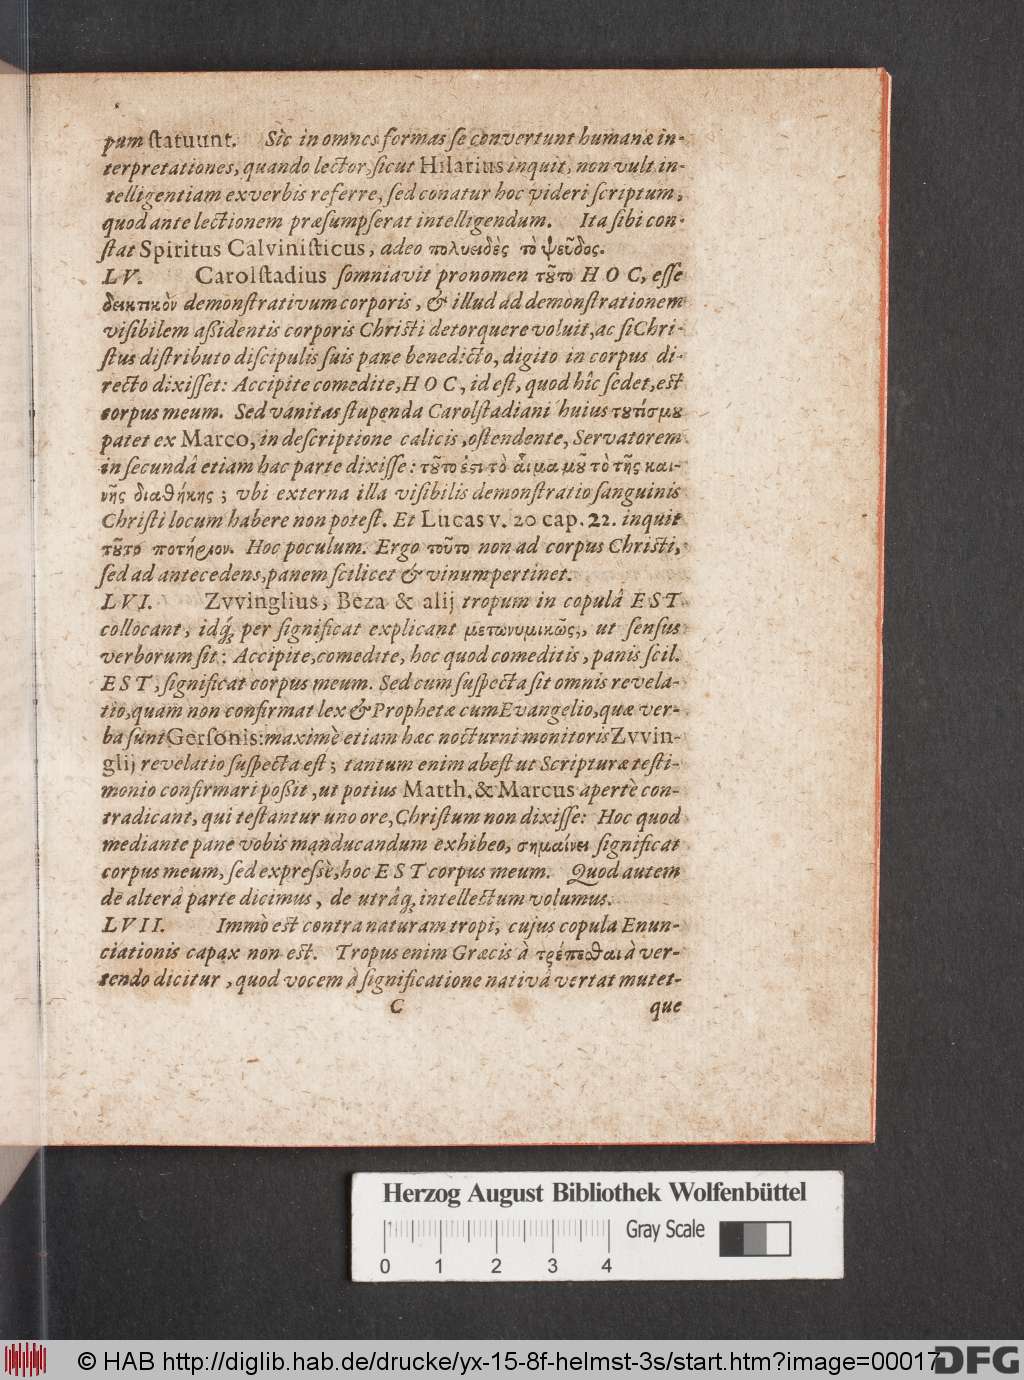 pum ſtatuunt. Sic in omnes formas ſe convertunt humanæ in-
terpretationes, quando lector, ſicut Hilarius inquit, non vult in-
telligentiam ex verbis referre, ſed conatur hoc videri ſcriptum,
quod ante lectionem præſumpſerat intelligendum. Ita ſibi con-
ſtat Spiritus Calviniſticus, adeo πολυειδὲς τὸ ψεῦδος.
LV. Carolſtadius ſomniavit pronomen τȣ͂το HOC, eſſe
δεικτικὸν demonſtrativum corporis, & illud ad demonſtrationem
viſibilem aſſidentis corporis Chriſti detorquere voluit, ac ſi Chri-
ſtus diſtributo diſcipulis ſuis pane benedicto, digito in corpus di-
recto dixiſſet: Accipite comedite, HOC, id eſt, quod hîc ſedet, eſt
corpus meum. Sed vanitas ſtupenda Carolſtadiani huius τȣτίσμȣ
patet ex Marco, in deſcriptione calicis, oſtendente, Servatorem
in ſecundâ etiam hac parte dixiſſe: τȣ͂το ἐςι τὸ ἇιμα μȣ͂ τὸ τῆς και-
νῆς διαθήκης; vbi externa illa viſibilis demonſtratio ſanguinis
Chriſti locum habere non poteſt. Et Lucas v. 20 cap. 22. inquit
τȣ͂το ποτήριον. Hoc poculum. Ergo τοῦτο non ad corpus Chriſti,
ſed ad antecedens, panem ſcilicet & vinum pertinet.
LVI. Zvvinglius, Beza & alij tropum in copulâ EST
collocant, idq́; per ſignificat explicant μετωνυμικῶς,, ut ſenſus
verborum ſit: Accipite, comedite, hoc quod comeditis, panis ſcil.
EST, ſignificat corpus meum. Sed cum ſuſpecta ſit omnis revela-
tio, quam non confirmat lex & Prophetæ cum Evangelio, quæ ver-
ba ſunt Gerſonis: maximè etiam hæc nocturni monitoris Zvvin-
glij revelatio ſuſpecta eſt; tantum enim abeſt ut Scripturæ teſti-
monio confirmari poßit, ut potius Matth. & Marcus apertè con-
tradicant, qui teſtantur uno ore, Chriſtum non dixiſſe: Hoc quod
mediante pane vobis manducandum exhibeo, σημαίνει ſignificat
corpus meum, ſed expreſſè, hoc EST corpus meum. Quod autem
de alterâ parte dicimus, de utrâq; intellectum volumus.
LVII. Immò eſt contra naturam tropi, cujus copula Enun-
ciationis capax non eſt. Tropus enim Græcis à τρέπεσθαι à ver-
tendo dicitur, quod vocem à ſignificatione nativâ vertat mutet-
C que
Herzog August Bibliothek Wolfenbüttel
Gray Scale
0 1 2 3 4
© HAB http://diglib.hab.de/drucke/yx-15-8f-helmst-3s/start.htm?image=00017
DFG